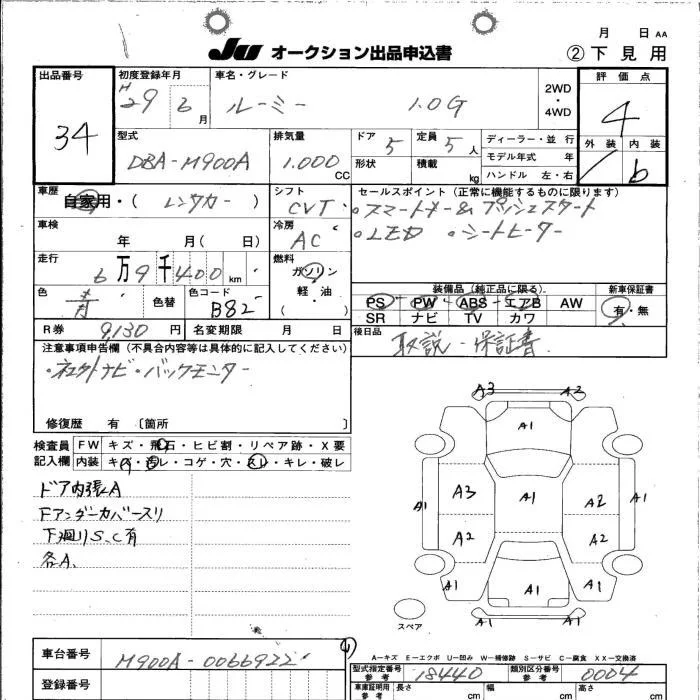 月 日 AA
JU オークション出品申込書 ②下見用
出品番号 初度登録年月 車名・グレード 2WD ・ 4WD 評価点
34 H29 6月 ルーミー 1.0G 4
型式 排気量 ドア 5 定員 5人 ディーラー・並 行 外装 内装
DBA-M900A 1.000 CC 形状 積載 kg モデル年式 年 b
ハンドル 左・右
車歴 シフト セールスポイント（正常に機能するものに限ります）
自家用・（ レンタカー ） CVT ・スマートキー& プッシュスタート
車検 冷房 ・LED ・シートヒーター
年 月（ 日） AC
走行 燃料
6万9千400km ガソリン
色 色替 色コード 軽・油 装備品（純正品に限る） 新車保証書
青 B82 （ ） PS PW ABS エアB AW 有・無
SR ナビ TV カワ
R券 9,130円 名変期限 月 日 後日品
注意事項申告欄（不具合内容等は具体的に記入してください） 取説－保証書
・ネクストナビ・バックモニター
修復歴 有 〔箇所 〕
検査員 FW キズ・飛石・ヒビ割・リペア跡・X要
記入欄 内装 キズ・汚レ・コゲ・穴・スレ・キレ・破レ
ドア内張A
Fアンダーカバースリ
下廻りS、C有
各A、
A3 A2
A1
A1 A3 A1 A2 A1
A2 A2
A1 A1 A1
A1
スペア
A－キズ E－エクボ U－凹み W－補修跡 S－サビ C－腐食 XX－交換済
車台番号 M900A-0066922
型式指定番号 参考 18440 類別区分番号 参考 0004
登録番号 車庫証明用 参考 長さ cm 幅 cm 高さ cm